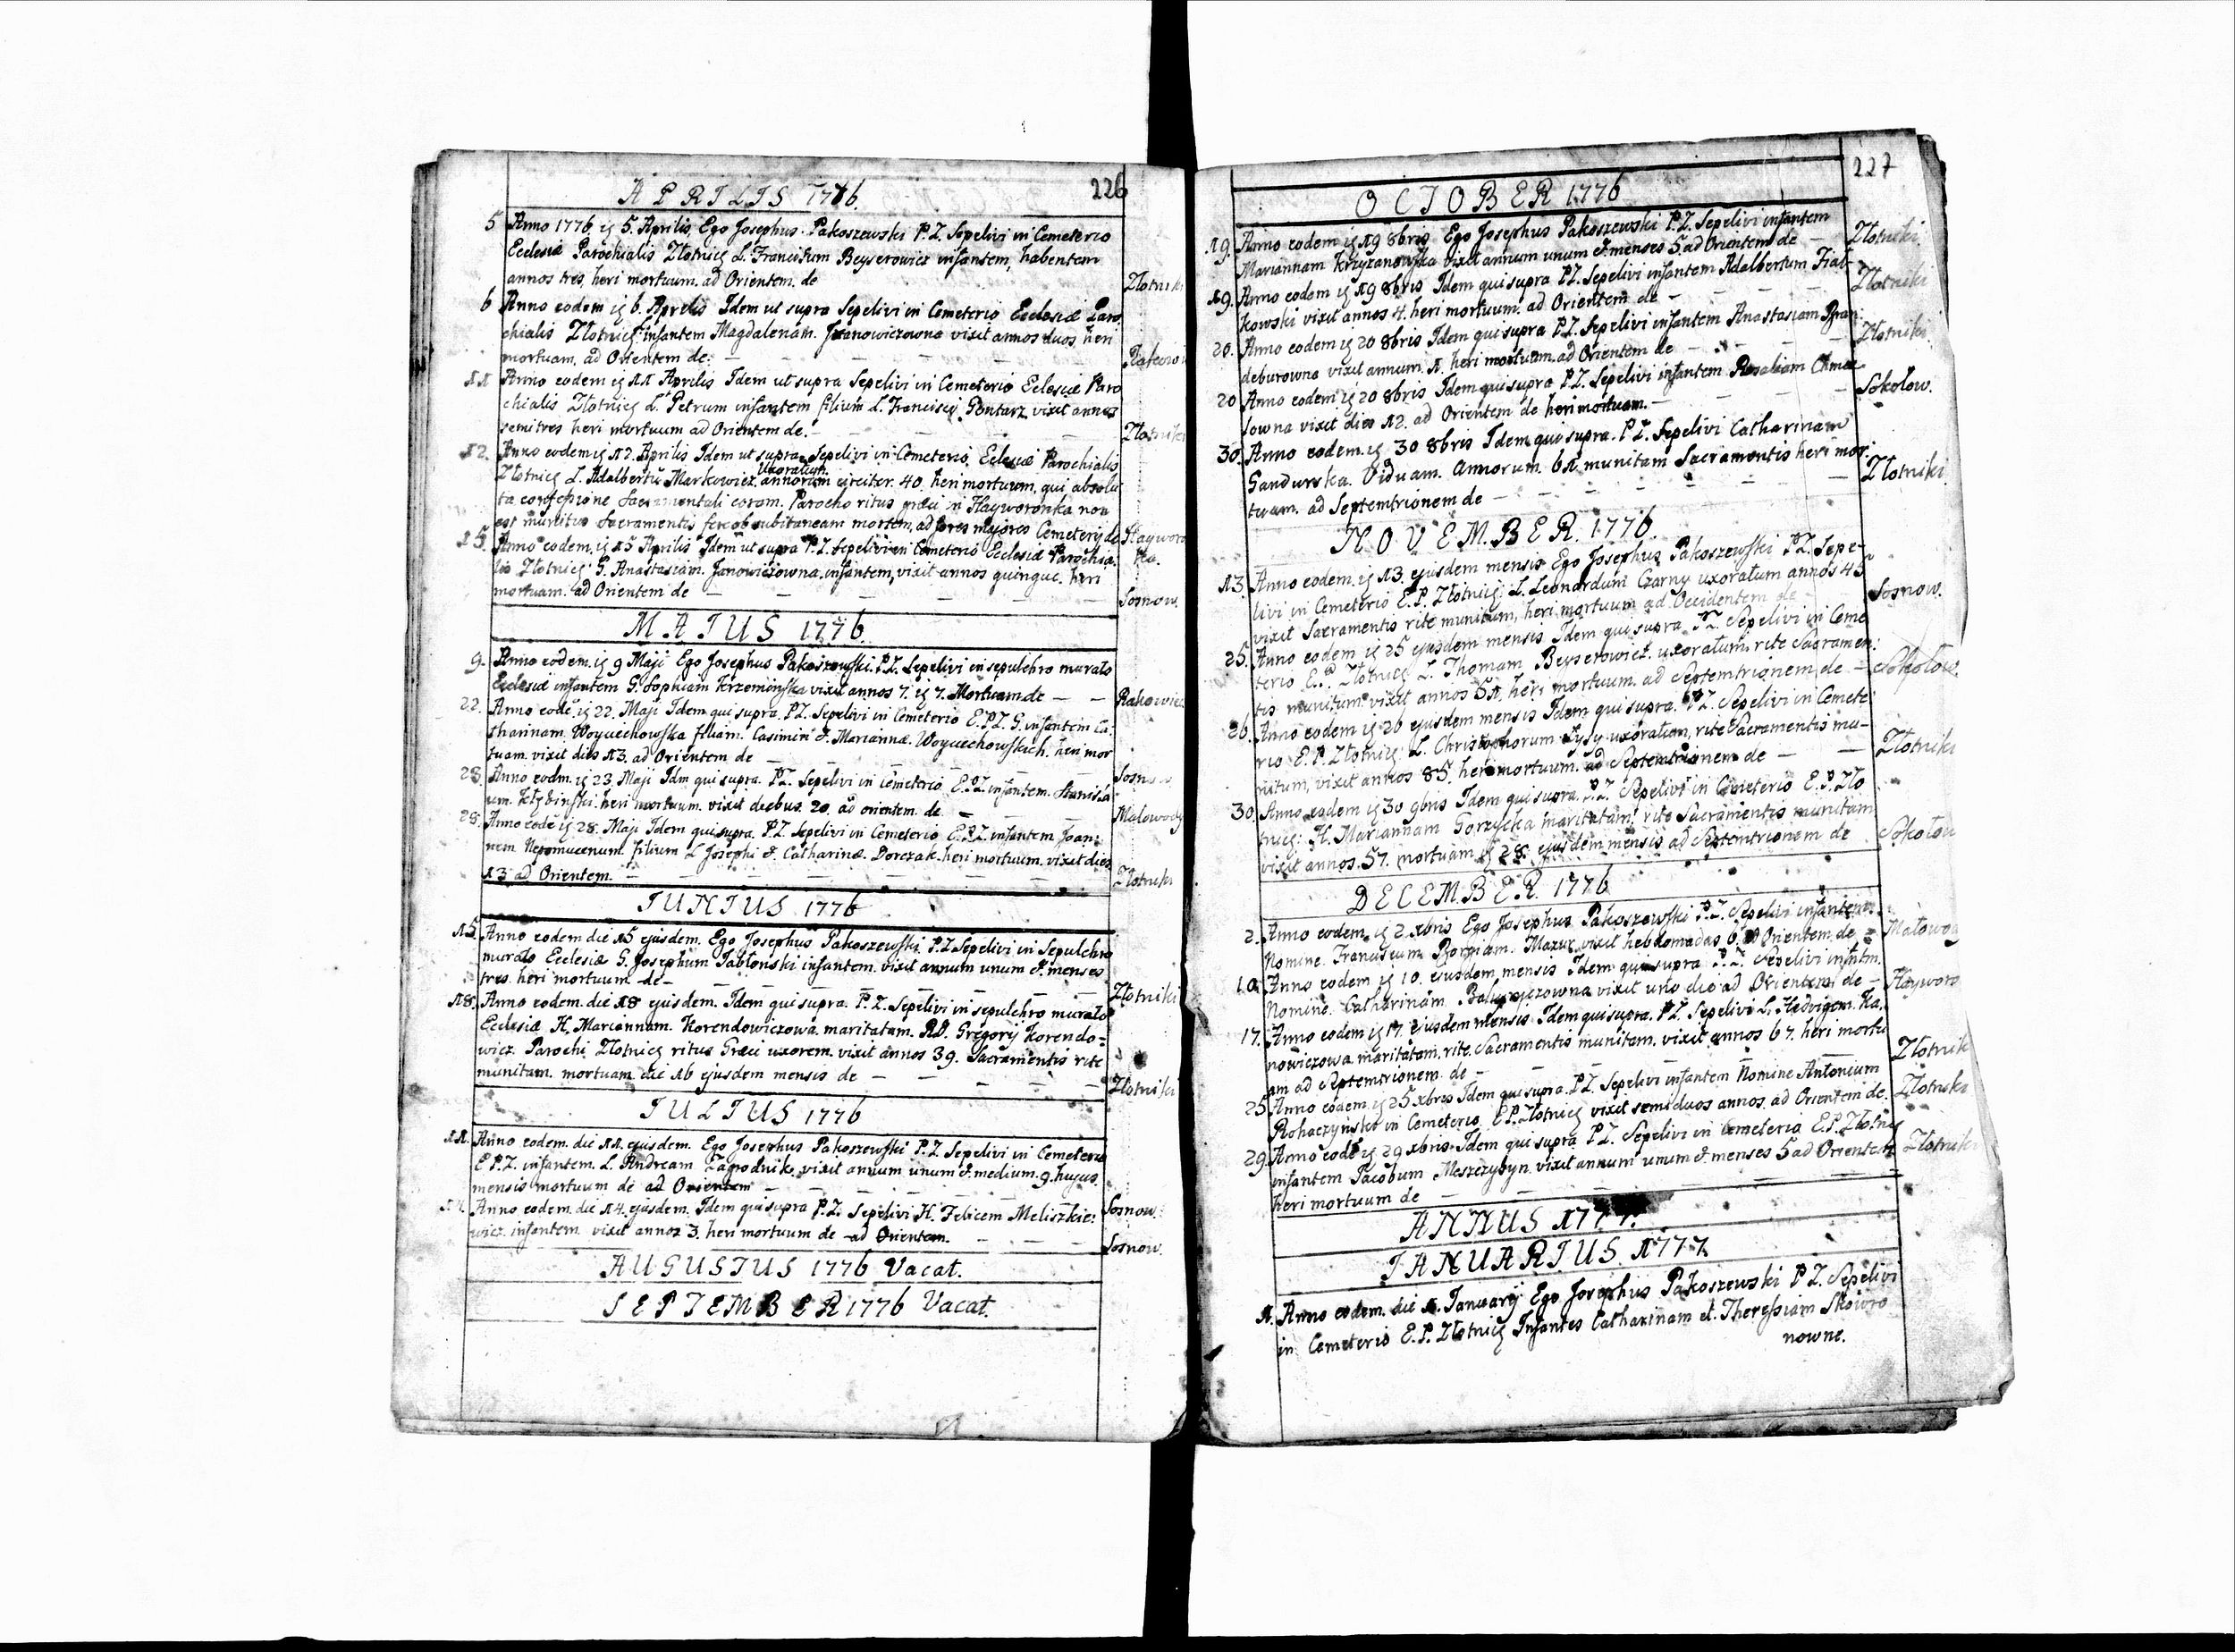 226
APRILIS 1776.
5 Anno 1776 ig 5. Aprilis, Ego Josephus Pakoszewski P.Z. Sepelivi in Cemeterio
Ecclesiæ Parochialis Złotnicg L. Beyserowicz infantem, habentem
annos tres, heri mortuum. ad Orientem. de Złotniki
6 Anno eodem ig 6. Aprilis Idem ut supra Sepelivi in Cemeterio Ecclesiæ Paro
chialis Złotnicg infantem Magdalenam. Janowiczowna vixit annos duos, heri
mortuam, ad Orientem de.
11 Anno eodem ig 11 Aprilis Idem ut supra Sepelivi in Cemeterio Eclesiæ Paro
chialis Złotnicg L. Petrum infantem filium L. Francisci Gontarz vixit annos
semitres heri mortuum ad Orientem de. Złotniki
12. Anno eodem ig 12. Aprilis Idem ut supra Sepelivi in Cemeterio. Eclesiæ Parochialis
Uxoratum.
Złotnicg L. Adalbertū Markowicz, annorum circiter. 40. heri mortuum, qui absolu
ta confessione Sacramentali coram. Parocho ritus græci in Hayworonka non
est munitus Sacramentis ob subitaneam mortem, ad fores majores Cemeterij de Hayworo
15. Anno eodem, ig 15 Aprilis Idem ut supra P.Z. Sepelivi in Cemeterio Ecclesiæ Parochia ka.
lis Złotnicg. G. Anastasiam. Janowiczowna, infantem, vixit annos quinque. heri
mortuam. ad Orientem de Sosnow.
MAIUS 1776.
9. Anno eodem. ig 9 Maji Ego Josephus Pakoszewski. P.Z. Sepelivi in sepulchro murato
Ecclesiæ infantem G. Sophiam Krzeminska vixit annos 7. ig 7. Mortuam de Rakowiec
22. Anno eodē ig 22. Maji Idem qui supra. PZ. Sepelivi in Cemeterio E.P.Z. G. infantem Ca:
tharinam. Woyciechowska filiam. Casimiri &. Mariannæ. Woyciechowskich. heri mor
tuam. vixit dies 13. ad Orientem de Sosnow
23. Anno eodm. ig 23. Maji Idm qui supra. PZ. Sepelivi in Cemeterio E.P.Z. infantem. Stanisla
um. heri mortuum. vixit diebus. 20. ad orientem. de Malowody
28. Anno eodē ig 28. Maji Idem qui supra. P.Z. Sepelivi in Cemeterio. E.P.Z. infantem Joan:
nem Nepomucenum. filium L Josephi &. Catharinæ. Dorczak. heri mortuum. vixit dies
13 ad Orientem. Złotniki
IUNIUS 1776
15. Anno eodem die 15 ejusdem. Ego Josephus Pakoszewski P.Z Sepelivi in Sepulchro
murato Ecclesiæ G. Josephum Jabłonski infantem. vixit annum unum &. menses
tres. heri mortuum de Złotniki
18. Anno eodem. die 18 ejusdem. Idem qui supra. P.Z. Sepelivi in sepulchro murato
Ecclesiæ H. Mariannam. Korendowiczowa. maritatam. RD. Gregorij Korendo=
wicz. Parochi, Złotnicg ritus Græci uxorem. vixit annos 39. Sacramentis rite
munitam. mortuam die 16 ejusdem mensis de Złotniki
IULIUS 1776
11. Anno eodem. die 11. ejusdem. Ego Josephus Pakoszewski P.Z. Sepelivi in Cemeterio
E P.Z. infantem. L. Andream Zagrodnik, vixit annum unum &. medium. 9. hujus.
mensis mortuum de ad Orientem Sosnow.
14. Anno eodem. die 14. ejusdem. Idem qui supra P.Z. Sepelivi H. Felicem Meliszkie:
wicz. infantem. vixit annos 3. heri mortuum de ad Orientem. Sosnow.
AUGUSTUS 1776 Vacat.
SEPTEMBER 1776 Vacat.
227
OCTOBER 1776
19. Anno eodem ig 19 8bris Ego Josephus Pakoszewski P.Z. Sepelivi infantem
Mariannam Krzyzanowska vixit annum unum &. menses 5. ad Orientem de Złotniki.
19. Anno eodem ig 19 8bris Idem qui supra P.Z. Sepelivi infantem Adalbertum Fiał-
kowski vixit annos 4. heri mortuum. ad Orientem de Złotniki
20. Anno eodem ig 20 8bris Idem qui supra P.Z. Sepelivi infantem Anastasiam
deburowna vixit annum. 1. heri mortuam. ad Orientem de Złotniki.
20 Anno eodem ig 20 8bris Idem qui supra P.Z. Sepelivi infantem Rosaliam Chmie
lowna vixit dies 12. ad Orientem de heri mortuam. Sokolow.
30. Anno eodem. ig. 30 8bris Idem qui supra. P.Z. Sepelivi Catharinam
Gandurska. Viduam. Annorum. 61 munitam Sacramentis heri mor
tuam. ad Septemtrionem de Złotniki
NOVEMBER. 1776.
13. Anno eodem. ig 13. ejusdem mensis Ego Josephus Pakoszewski P.Z. Sepe-
livi in Cemeterio E.P. Złotnicg. L. Leonardum Czarny uxoratum annos 45
vixit Sacramentis rite munitum, heri mortuum ad Occidentem de Sosnow.
25. Anno eodem ig 25 ejusdem mensis Idem qui supra P.Z. Sepelivi in Ceme
terio E.P. Złotnicg L. Thomam Beyserowicz. uxoratum, rite Sacramen:
tis munitum vixit annos 51, heri mortuum. ad Septemtrionem de Sokołow.
26. Anno eodem ig 26 ejusdem mensis Idem qui supra. P.Z. Sepelivi in Cemete
rio E.P. Złotnicg L. Christophorum Łysy uxoratum, rite Sacramentis mu-
nitum, vixit annos 85. heri mortuum. ad Septemtrionem de Złotniki
30. Anno eodem ig 30 9bris Idem qui supra. P.Z. Sepelivi in Cemeterio E.P. Zło
tnicg: H. Mariannam Gorzycka maritatam, rite Sacramentis munitam
vixit annos. 57. mortuam ig 28. ejusdem mensis ad Septemtrionem de Sokołow
DECEMBER. 1776
2. Anno eodem. ig 2. xbris Ego Josephus Pakoszewski P.Z. Sepelivi infantem
Nomine. Franciscum Borgiam. Mazur vixit hebdomadas 6. ad Orientem. de Małowo
10. Anno eodem ig 10. ejusdem mensis Idem qui supra P.Z. Sepelivi infantem
Nomine. Catharinam vixit uno die ad Orientem de Hayworo
17. Anno eodem ig 17. ejusdem mensis Idem qui supra. P.Z. Sepelivi L. Hedvigem. Ka,
nowiczowa maritatam. rite. Sacramentis munitam. vixit annos 67. heri mortu
am ad Septemtrionem. de Złotnik
25 Anno eodem. ig 25 xbris Idem qui supra. P.Z. Sepelivi infantem Nomine Antonium
Rohaczynski in Cemeterio E.P. Złotnicg vixit semiduos annos. ad Orientem de. Złotniki
29. Anno eodē ig 29 xbris Idem qui supra P.Z. Sepelivi in Cemeterio E.P. Złotnicg
infantem Jacobum Meszczyszyn. vixit annum unum &. menses 5 ad Orientem Złotniki
heri mortuum de
ANNUS 1777.
IANUARIUS. 1777
1. Anno eodem. die 1. Januarij Ego Josephus Pakoszewski P.Z. Sepelivi
in Cemeterio E.P. Złotnicg Infantes Catharinam et. Theressiam Skowro
nowne.